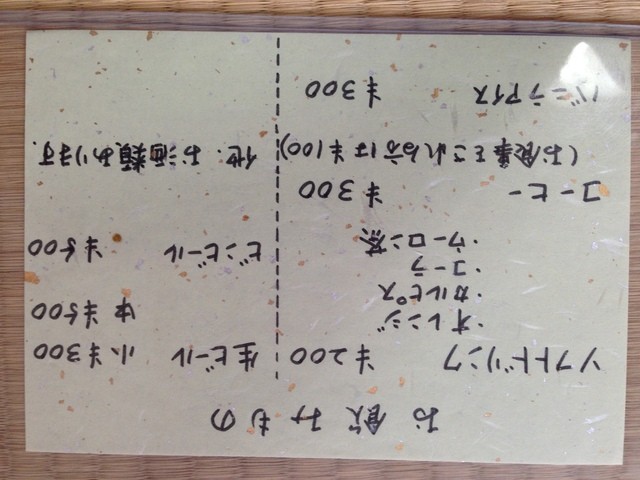 お飲みもの
ソフトドリンク ¥200
・オレンジ
・カルピス
・コーラ
・ウーロン茶
コーヒー ¥300
(お食事をされる方は¥100)
バニラアイス ¥300
生ビール 小¥300
中¥500
ビンビール ¥500
他.お酒類あります.